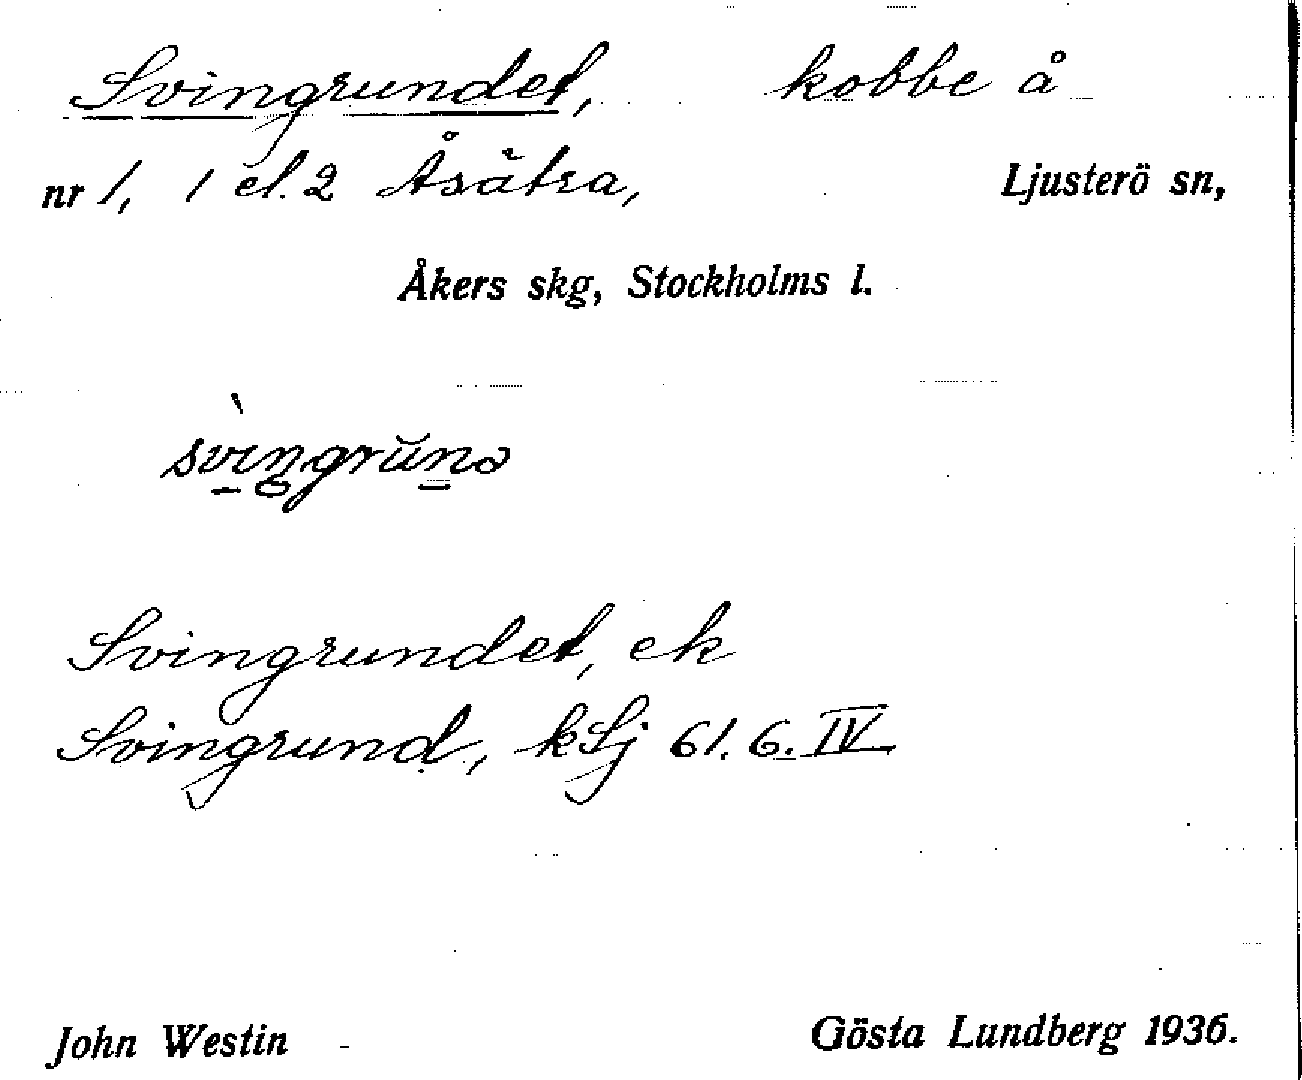 Svingrundet, kobbe å
nr 1, 1 el. 2 Åsätra, Ljusterö sn,
Åkers skg, Stockholms l.
svìngrŭnə
Svingrundet, ek
Svingrund, kSj 61. 6. IV
John Westin - Gösta Lundberg 1936.